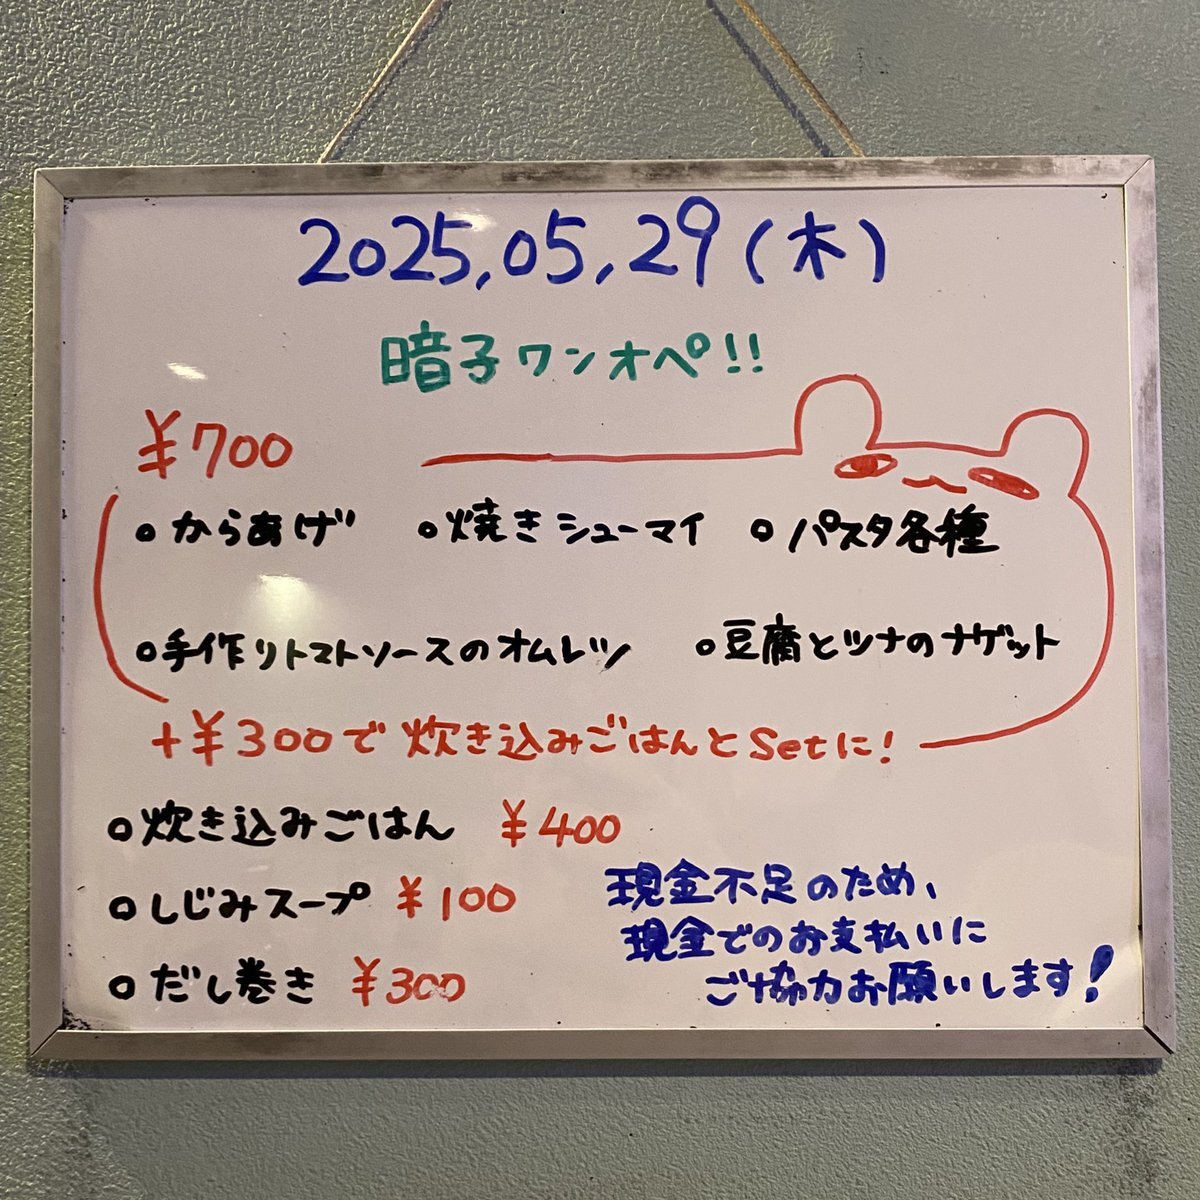 2025,05,29(木)
暗子ワンオペ!!
¥700
○からあげ ○焼きシューマイ ○パスタ各種
○手作りトマトソースのオムレツ ○豆腐とツナのナゲット
+¥300で炊き込みごはんとSetに!
○炊き込みごはん ¥400
○しじみスープ ¥100
○だし巻き ¥300
現金不足のため、
現金でのお支払いに
ご協力お願いします!